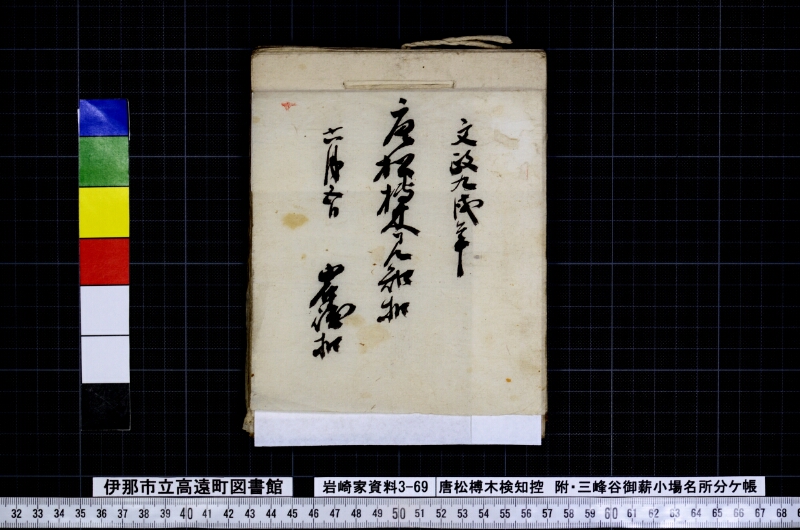 文政九戌年
唐松榑木見知扣
六月五日
岩崎扣
伊那市立高遠町図書館
岩崎家資料3-69
唐松榑木検知控 附・三峰谷御薪小場名所分ケ帳
32 33 34 35 36 37 38 39 40 41 42 43 44 45 46 47 48 49 50 51 52 53 54 55 56 57 58 59 60 61 62 63 64 65 66 67 68